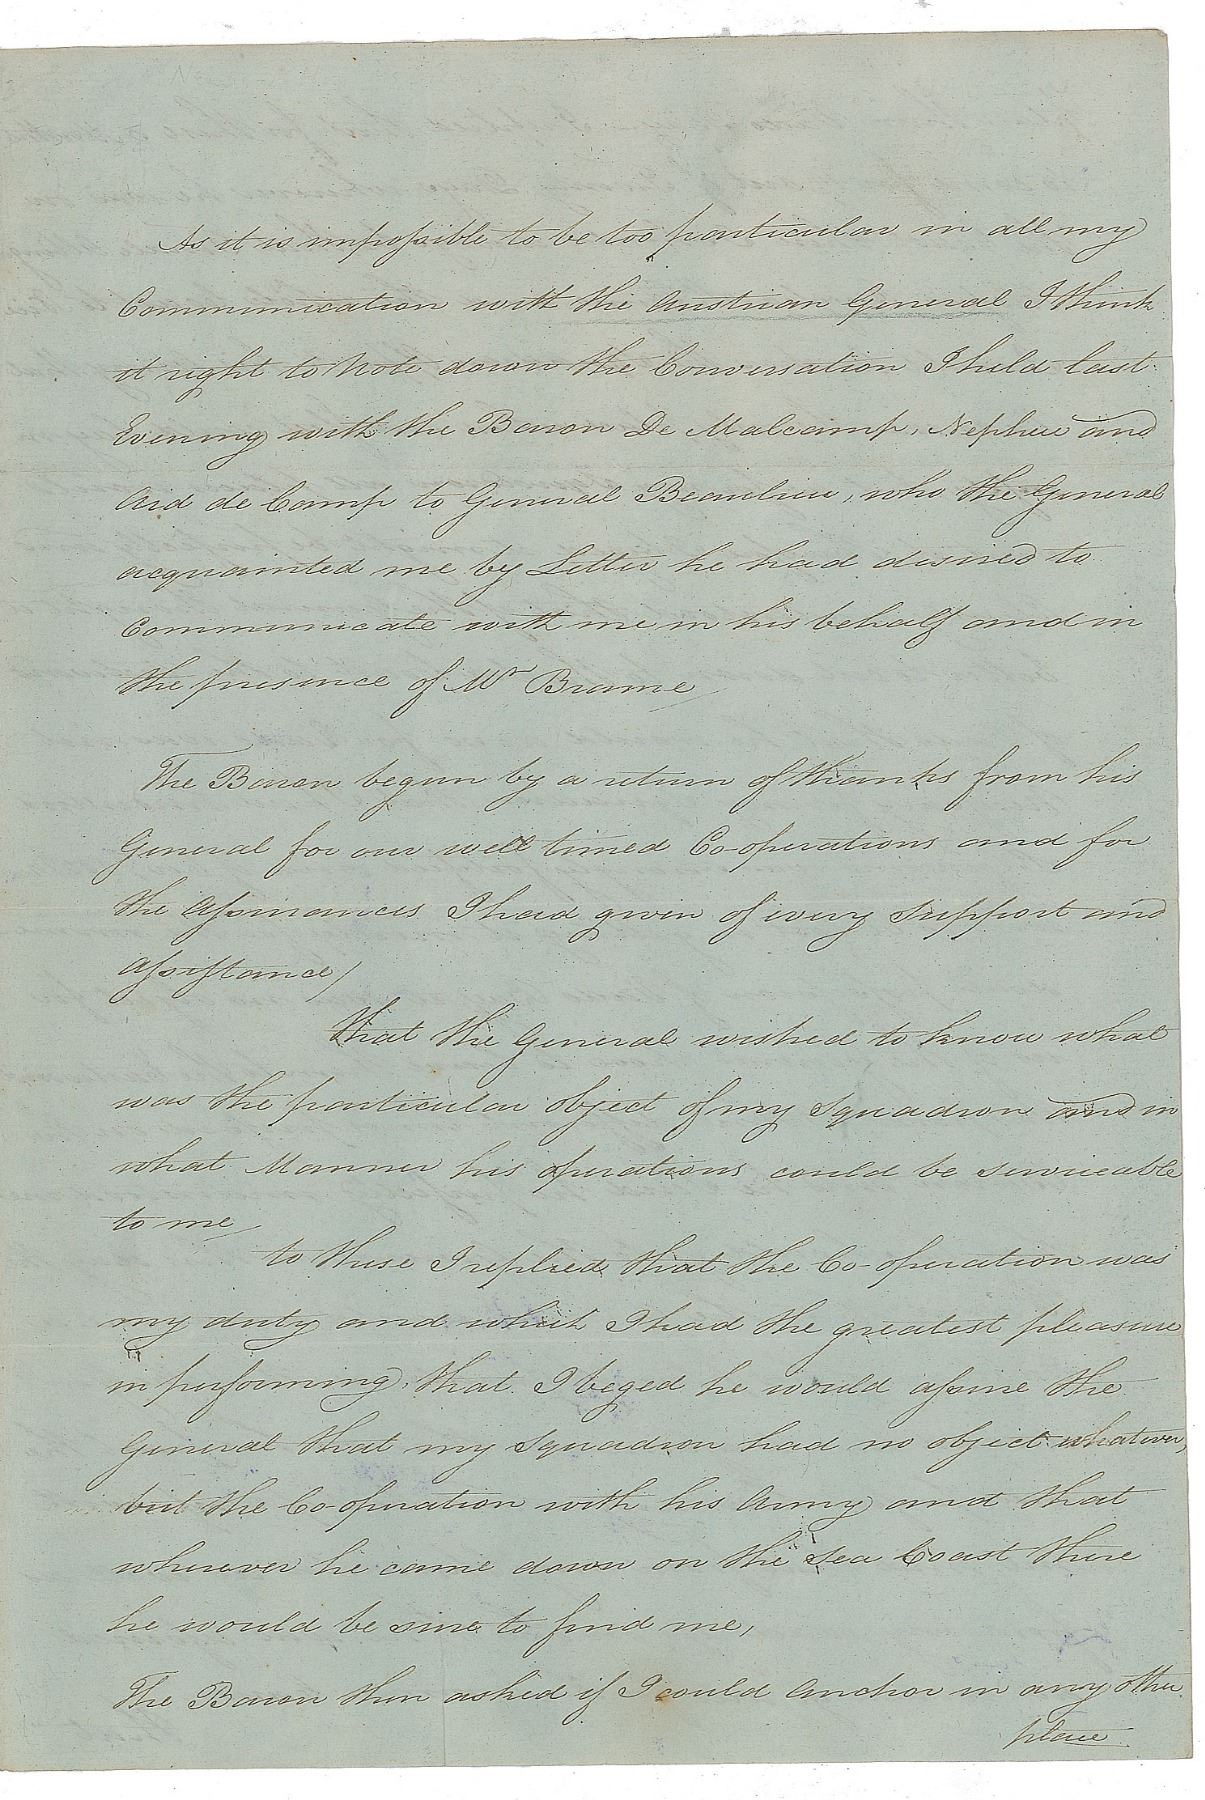 As it is impossible to be too particular in all my
Communication with the Austrian General I think
it right to Note down the Conversation I held last
Evening with the Baron De Malcamp, Nephew and
Aid de Camp to General Beaulieu, who the General
acquainted me by Letter he had desired to
Communicate with me in his behalf and in
the presence of Mr Brame
The Baron begun by a return of thanks from his
General for our well timed Co-operations and for
the Assurances I had given of every Support and
Assistance,
that the General wished to know what
was the particular object of my Squadron and in
what Manner his operations could be serviceable
to me,
to these I replied that the Co-operation was
my duty and which I had the greatest pleasure
in performing, that I beged he would assure the
General that my Squadron had no object whatever,
but the Co-operation with his Army and that
wherever he came down on the Sea Coast there
he would be sure to find me,
The Baron then asked if I could Anchor in any other
place